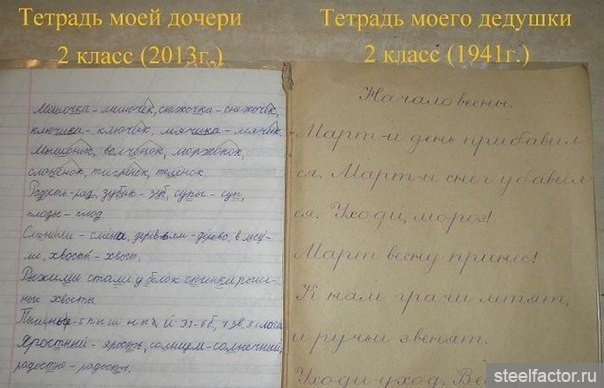 Тетрадь моей дочери
2 класс (2013г.)
Тетрадь моего дедушки
2 класс (1941г.)
Мешочка - мешочек, снежочки - снежочек,
ключика - ключик, мячика - мячик.
Мышонок, волчонок, моржонок,
слонёнок, тигрёнок, телёнок.
Радость - рад, зубок - зуб, супов - суп,
плоды - плод.
деревьям - дерево,
хвост.
Рыжими стали у белок
хвосты
Яростный - ярость, солнцем - солнечный,
радостью - радость.
Начало весны.
Март-и день прибавил-
ся. Март-и снег убавил-
ся. Уходи, мороз!
Март весну принес!
К нам грачи летят,
и ручьи звенят.
Уходи уход. Вё
steelfactor.ru